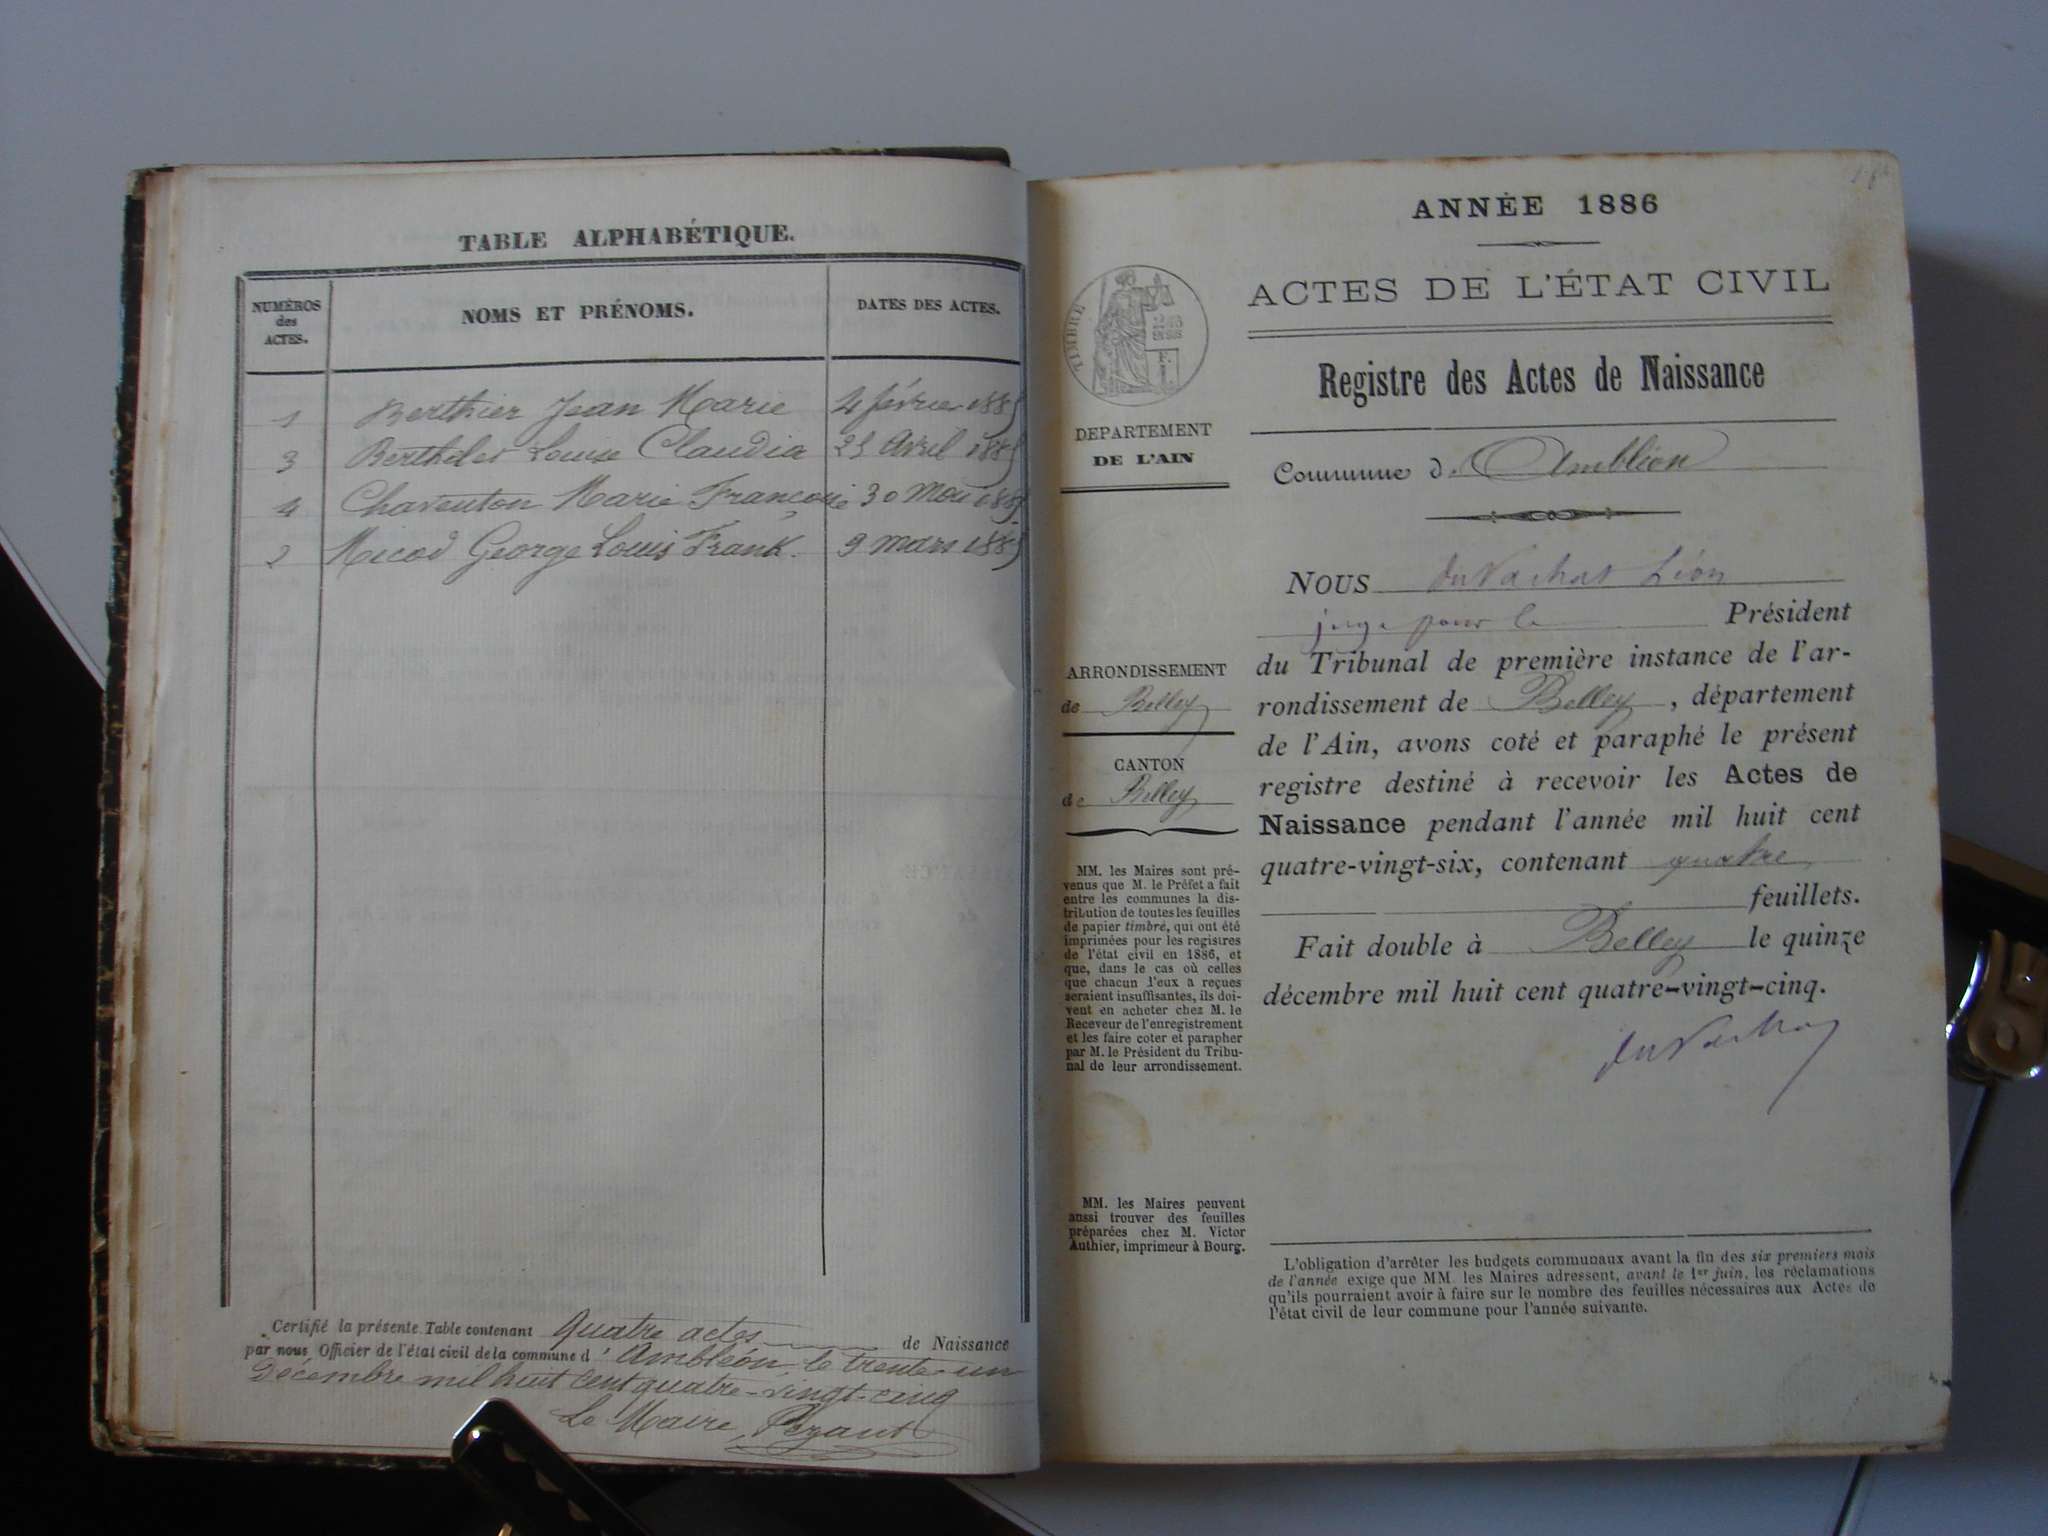 TABLE ALPHABÉTIQUE.
NUMÉROS
des
ACTES.
NOMS ET PRÉNOMS.
DATES DES ACTES.
1 Berthier Jean Marie 4 février 1885
3 Berthelet Louise Claudia 25 Avril 1885
4 Chaventon Marie Françoise 30 Mai 1885
2 Micod George Louis Frank. 9 mars 1885
Certifié la présente Table contenant Quatre actes de Naissance
par nous Officier de l'état civil de la commune d' Ambléon, le trente-un
Décembre mil huit cent quatre-vingt-cinq
Le Maire,
ANNÉE 1886
ACTES DE L'ÉTAT CIVIL
Registre des Actes de Naissance
Commune d' Ambléon
TIMBRE
DEPARTEMENT
DE L'AIN
ARRONDISSEMENT
de Belley
CANTON
de Belley
MM. les Maires sont pré-
venus que M. le Préfet a fait
entre les communes la dis-
tribution de toutes les feuilles
de papier timbré, qui ont été
imprimées pour les registres
de l'état civil en 1886, et
que, dans le cas où celles
que chacun d'eux a reçues
seraient insuffisantes, ils doi-
vent en acheter chez M. le
Receveur de l'enregistrement
et les faire coter et parapher
par M. le Président du Tribu-
nal de leur arrondissement.
MM. les Maires peuvent
aussi trouver des feuilles
préparées chez M. Victor
Authier, imprimeur à Bourg.
NOUS du Vachat Léon
juge pour le Président
du Tribunal de première instance de l'ar-
rondissement de Belley, département
de l'Ain, avons coté et paraphé le présent
registre destiné à recevoir les Actes de
Naissance pendant l'année mil huit cent
quatre-vingt-six, contenant quatre
feuillets.
Fait double à Belley le quinze
décembre mil huit cent quatre-vingt-cinq.
du Vachat
L'obligation d'arrêter les budgets communaux avant la fin des six premiers mois
de l'année exige que MM. les Maires adressent, avant le 1er juin, les réclamations
qu'ils pourraient avoir à faire sur le nombre des feuilles nécessaires aux Actes de
l'état civil de leur commune pour l'année suivante.